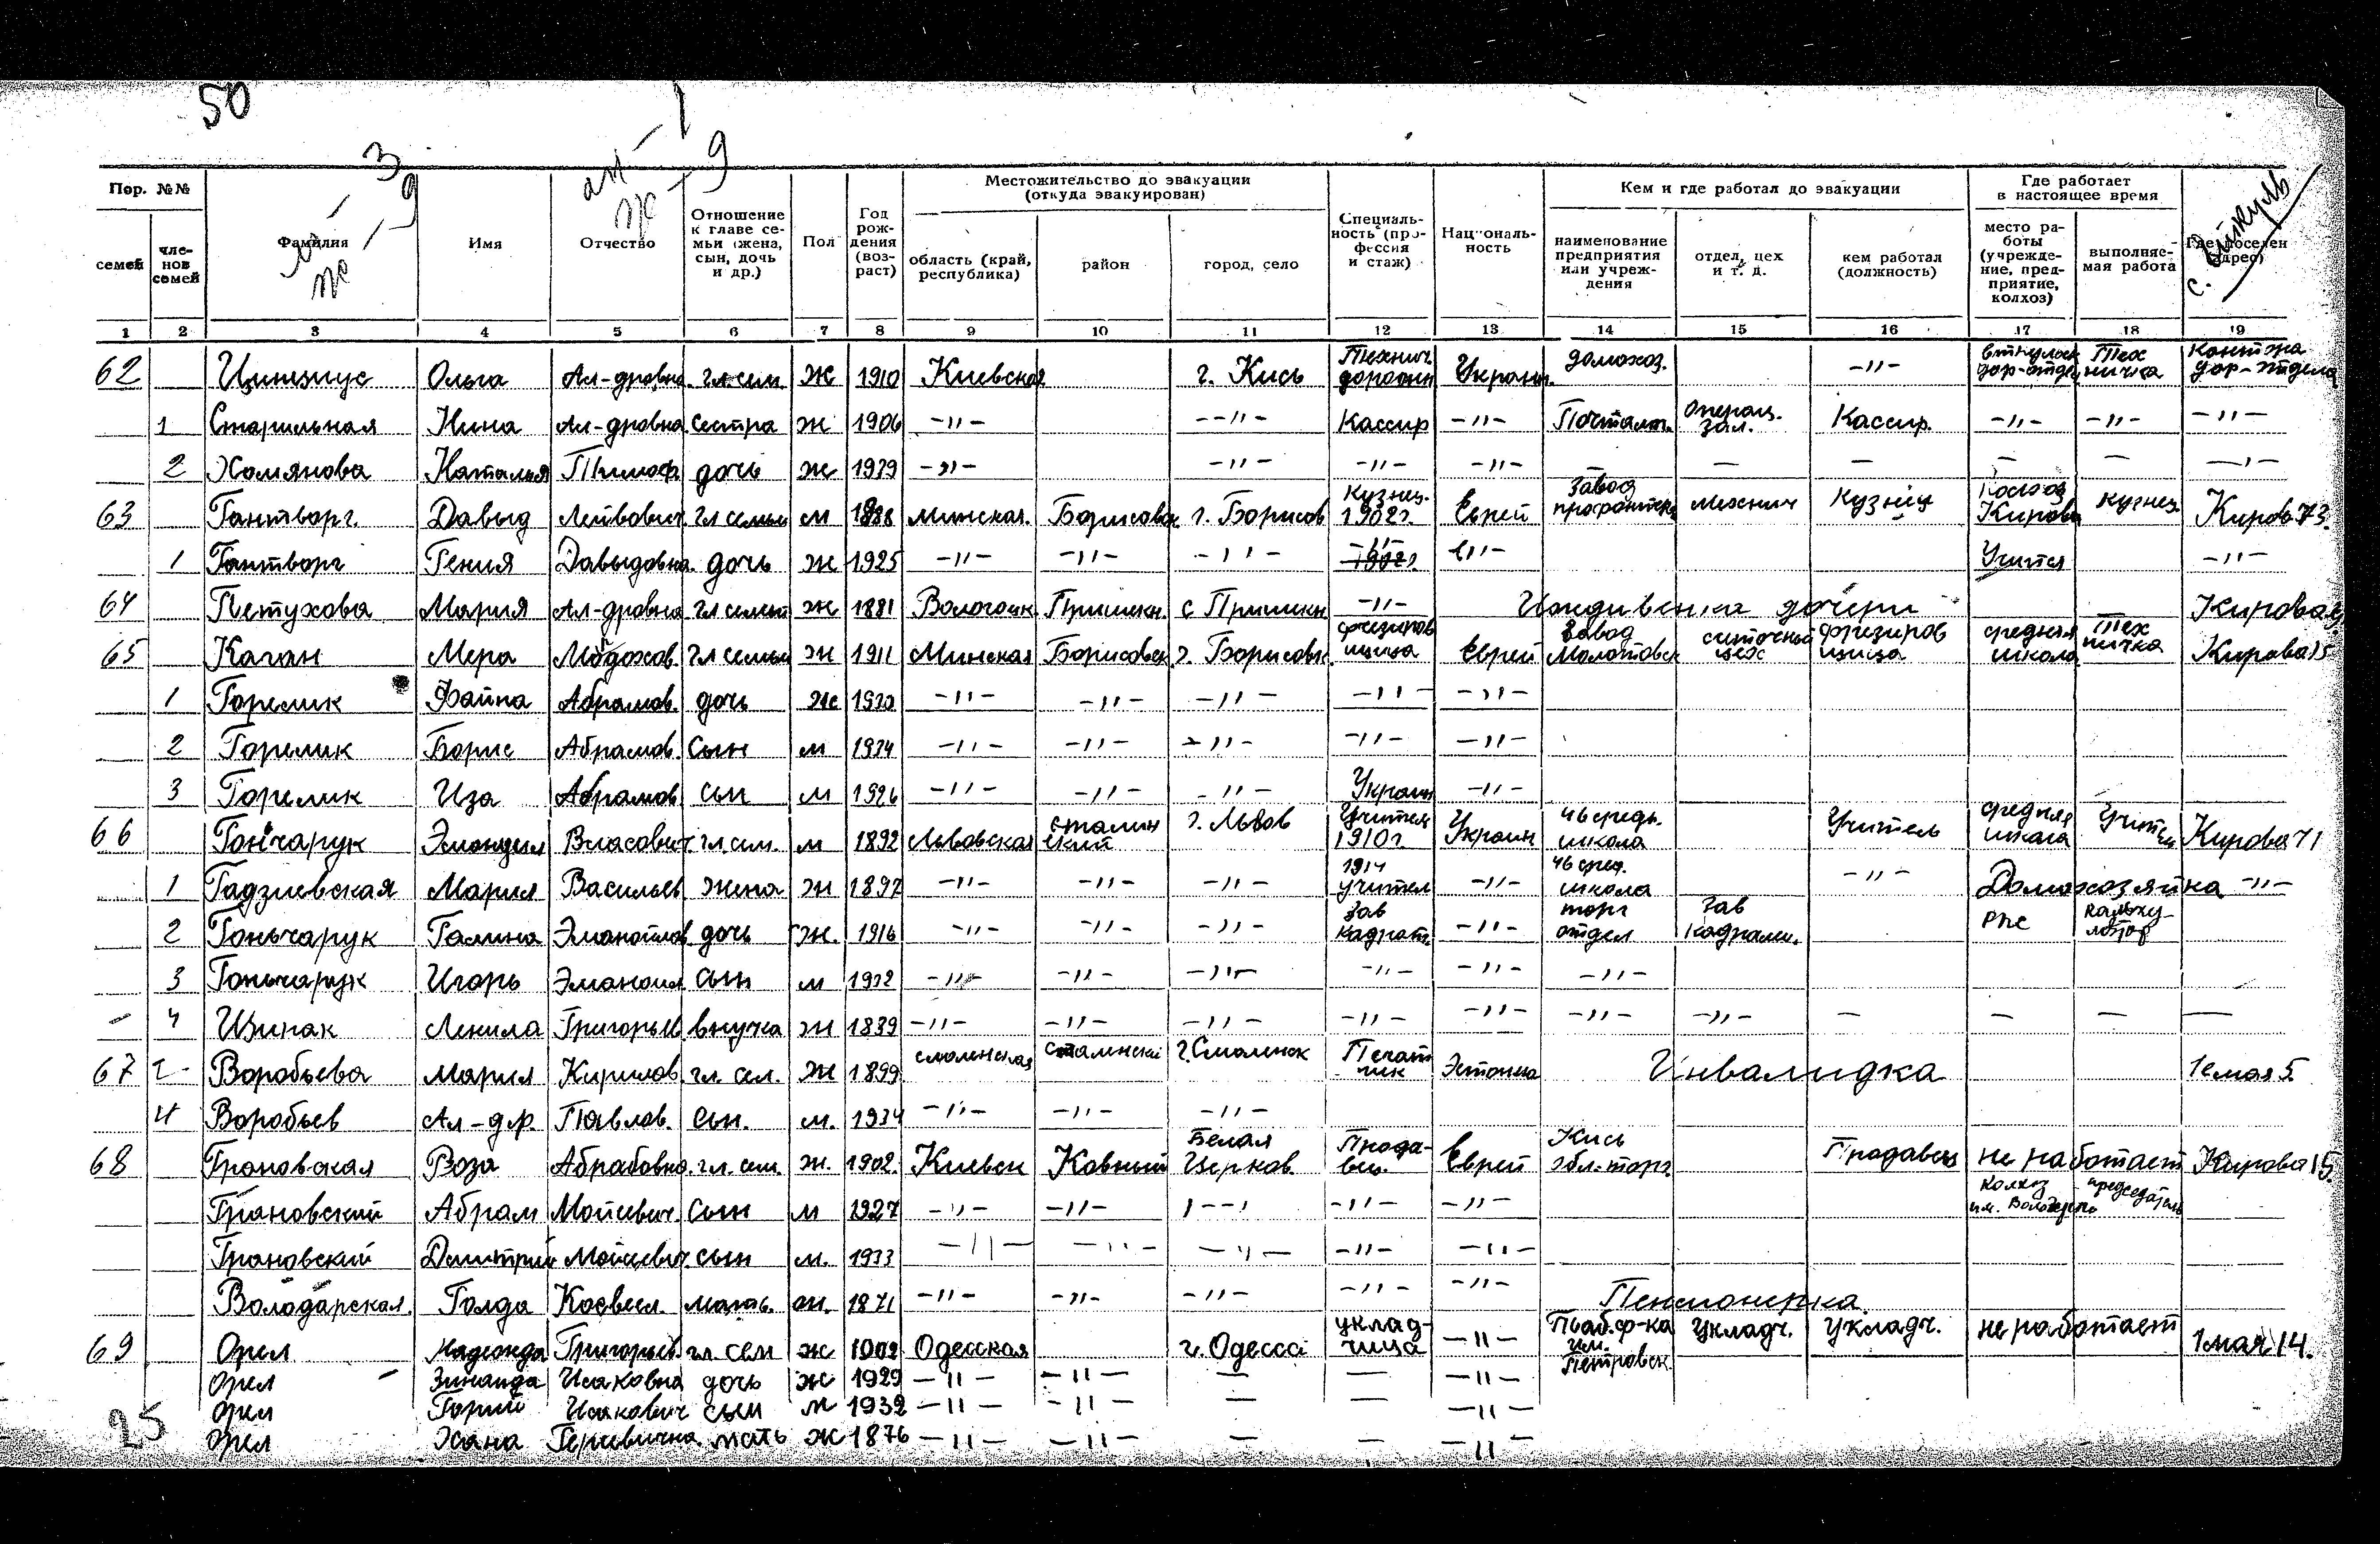 50
3
9
1
9
Пор. №№
Местожительство до эвакуации (откуда эвакуирован)
Кем и где работал до эвакуации
Где работает в настоящее время
с. Уйкуль
семей
членов семей
Фамилия
Имя
Отчество
Отношение к главе семьи (жена, сын, дочь и др.)
Пол
Год рождения (возраст)
область (край, республика)
район
город, село
Специальность (профессия и стаж)
Национальность
наименование предприятия или учреждения
отдел, цех и т. д.
кем работал (должность)
место работы (учреждение, предприятие, колхоз)
выполняемая работа
Где поселен (адрес)
1 2 3 4 5 6 7 8 9 10 11 12 13 14 15 16 17 18 19
62 Ольга Ал-дровна гл. сем. Ж 1910 Киевская г. Украин. домохоз. -"- Техничка Контора дор-отдела
1 Старильная Нина Ал-дровна Сестра Ж 1906 -"- -"- Кассир -"- Почтамт Операц. зал. Кассир -"- -"- -"-
2 Хомянова Наталья Тимоф дочь Ж 1939 -"- -"- -"- -"- — — — — — —
63 Гантворг. Давыд Лейбович гл семьи м 1888 Минская. Борисовск г. Борисов Кузнец. 1902г. Еврей Завод Механич Кузнец Колхоз Кирова кузнец Кирова 73.
1 Гантворг Гения Давыдовна дочь Ж 1925 -"- -"- -"- -"- 1902г. -"- Учится -"-
64 Петухова Мария Ал-дровна гл семьи Ж 1881 -"- Иждивенка дочери Кирова
65 Каган Мера Мордохов. гл семьи Ж 1911 Минская Борисовск г. Борисовк фрезировщица Еврей Завод Молотовск цех фрезировщица средняя школа техничка Кирова 15
1 Горелик Файна Абрамов. дочь Ж 1930 -"- -"- -"- -"- -"-
2 Горелик Борис Абрамов. Сын м 1934 -"- -"- -"- -"- -"-
3 Горелик Иза Абрамов сын м 1926 -"- -"- -"- Украин -"-
66 Гончарук Власович гл. сем. м 1892 Львовская сталинский г. Львов Учитель 1910г. Украин 46 средн. школа Учитель средняя школа Учитель Кирова 71
1 Гадзиевская Мария Васильев жена Ж 1897 -"- -"- -"- 1914 учител -"- 46 сред. школа -"- Домохозяйка -"-
2 Гоньчарук Галина Эманойлов дочь Ж. 1916 -"- -"- -"- Зав кадрам. -"- торг отдел Зав Кадрами. РПС калькулятор
3 Гоньчарук Игорь Эманоил сын м 1932 -"- -"- -"- -"- -"- -"-
4 Ленила Григорьев внучка Ж 1839 -"- -"- -"- -"- -"- -"- -"- — — — —
67 Воробьева Мария Кирилов. гл. сем. Ж 1899 смоленская сталинский г. Смоленск Печатник Эстонка Инвалидка 1е мая 5.
Воробьев Ал-др. Павлов. Сын. м. 1934 -"- -"- -"-
68 Грановская Роза гл. сем. Ж. 1902 Киевск Белая Церков. Продавец. Еврей обл. торг Продавец не работает Кирова 15.
Грановский Абрам Мойсевич. Сын м 1927 -"- -"- -"- -"- -"- Колхоз им. председатель
Грановский Дмитрий Мойсевич. сын м. 1933 -"- -"- -"- -"- -"-
Володарская. Голда мать. Ж. 1871 -"- -"- -"- -"- -"- Пенсионерка.
69 Орел Надежда Григорьев. гл. сем Ж 1902 Одесская г. Одесса укладчица -"- Таб. ф-ка им. Петровск. Укладч. Укладч. не работает 1 мая 14.
Орел Зинаида Исаковна дочь Ж 1929 -"- -"- — — -"-
Орел Исакович сын м 1932 -"- -"- — — -"-
25 Орел Хана мать Ж 1876 -"- -"- — — -"-